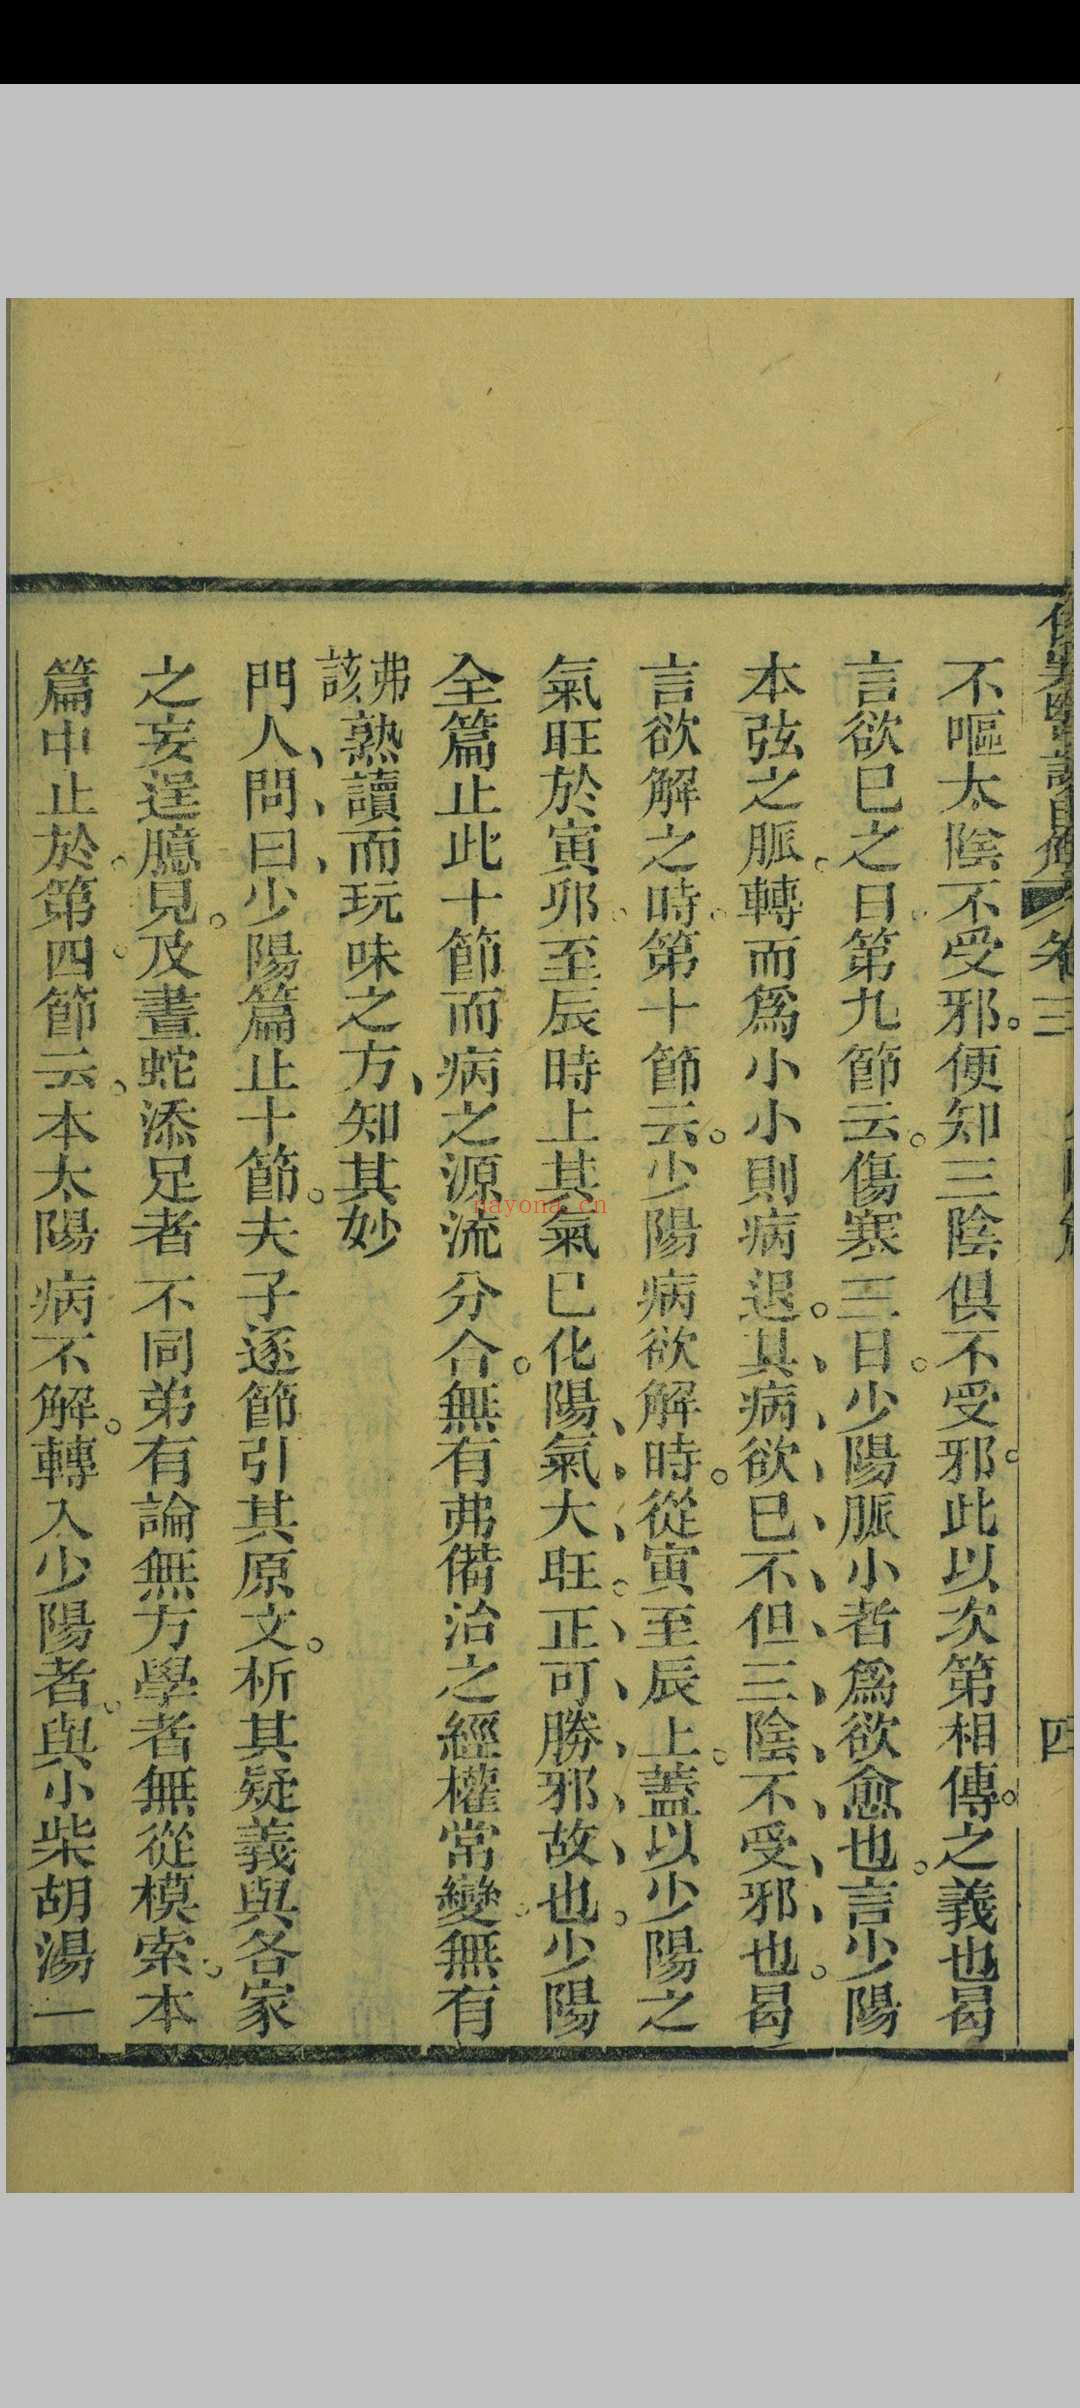 不嘔太陰不受邪。便知三陰俱不受邪。此以次第相傳。之義也曷
言欲已之日。第九節云。傷寒三日。少陽脈小者爲欲愈也。言少陽
本弦之脈。轉而爲小小則病退。其病欲已不但三陰不受邪也。曷
言欲解之時。第十節云。少陽病欲解時。從寅至辰上。蓋以少陽之
氣旺於寅卯。至辰時上其氣已化陽氣大旺。正可勝邪故也。少陽
全篇止此十節而病之源流分合。無有弗備治之經權常變。無有
弗該熟讀而玩味之方知其妙
門人問曰少陽篇止十節。夫子逐節引其原文。析其疑義與各家
之妄逞臆見。及畫蛇添足者不同弟有論無方學者無從模索。本
篇中止於。第四。節云。本太陽病不解。轉入少陽者。與小柴胡湯一
卷三
四
nayona.cn